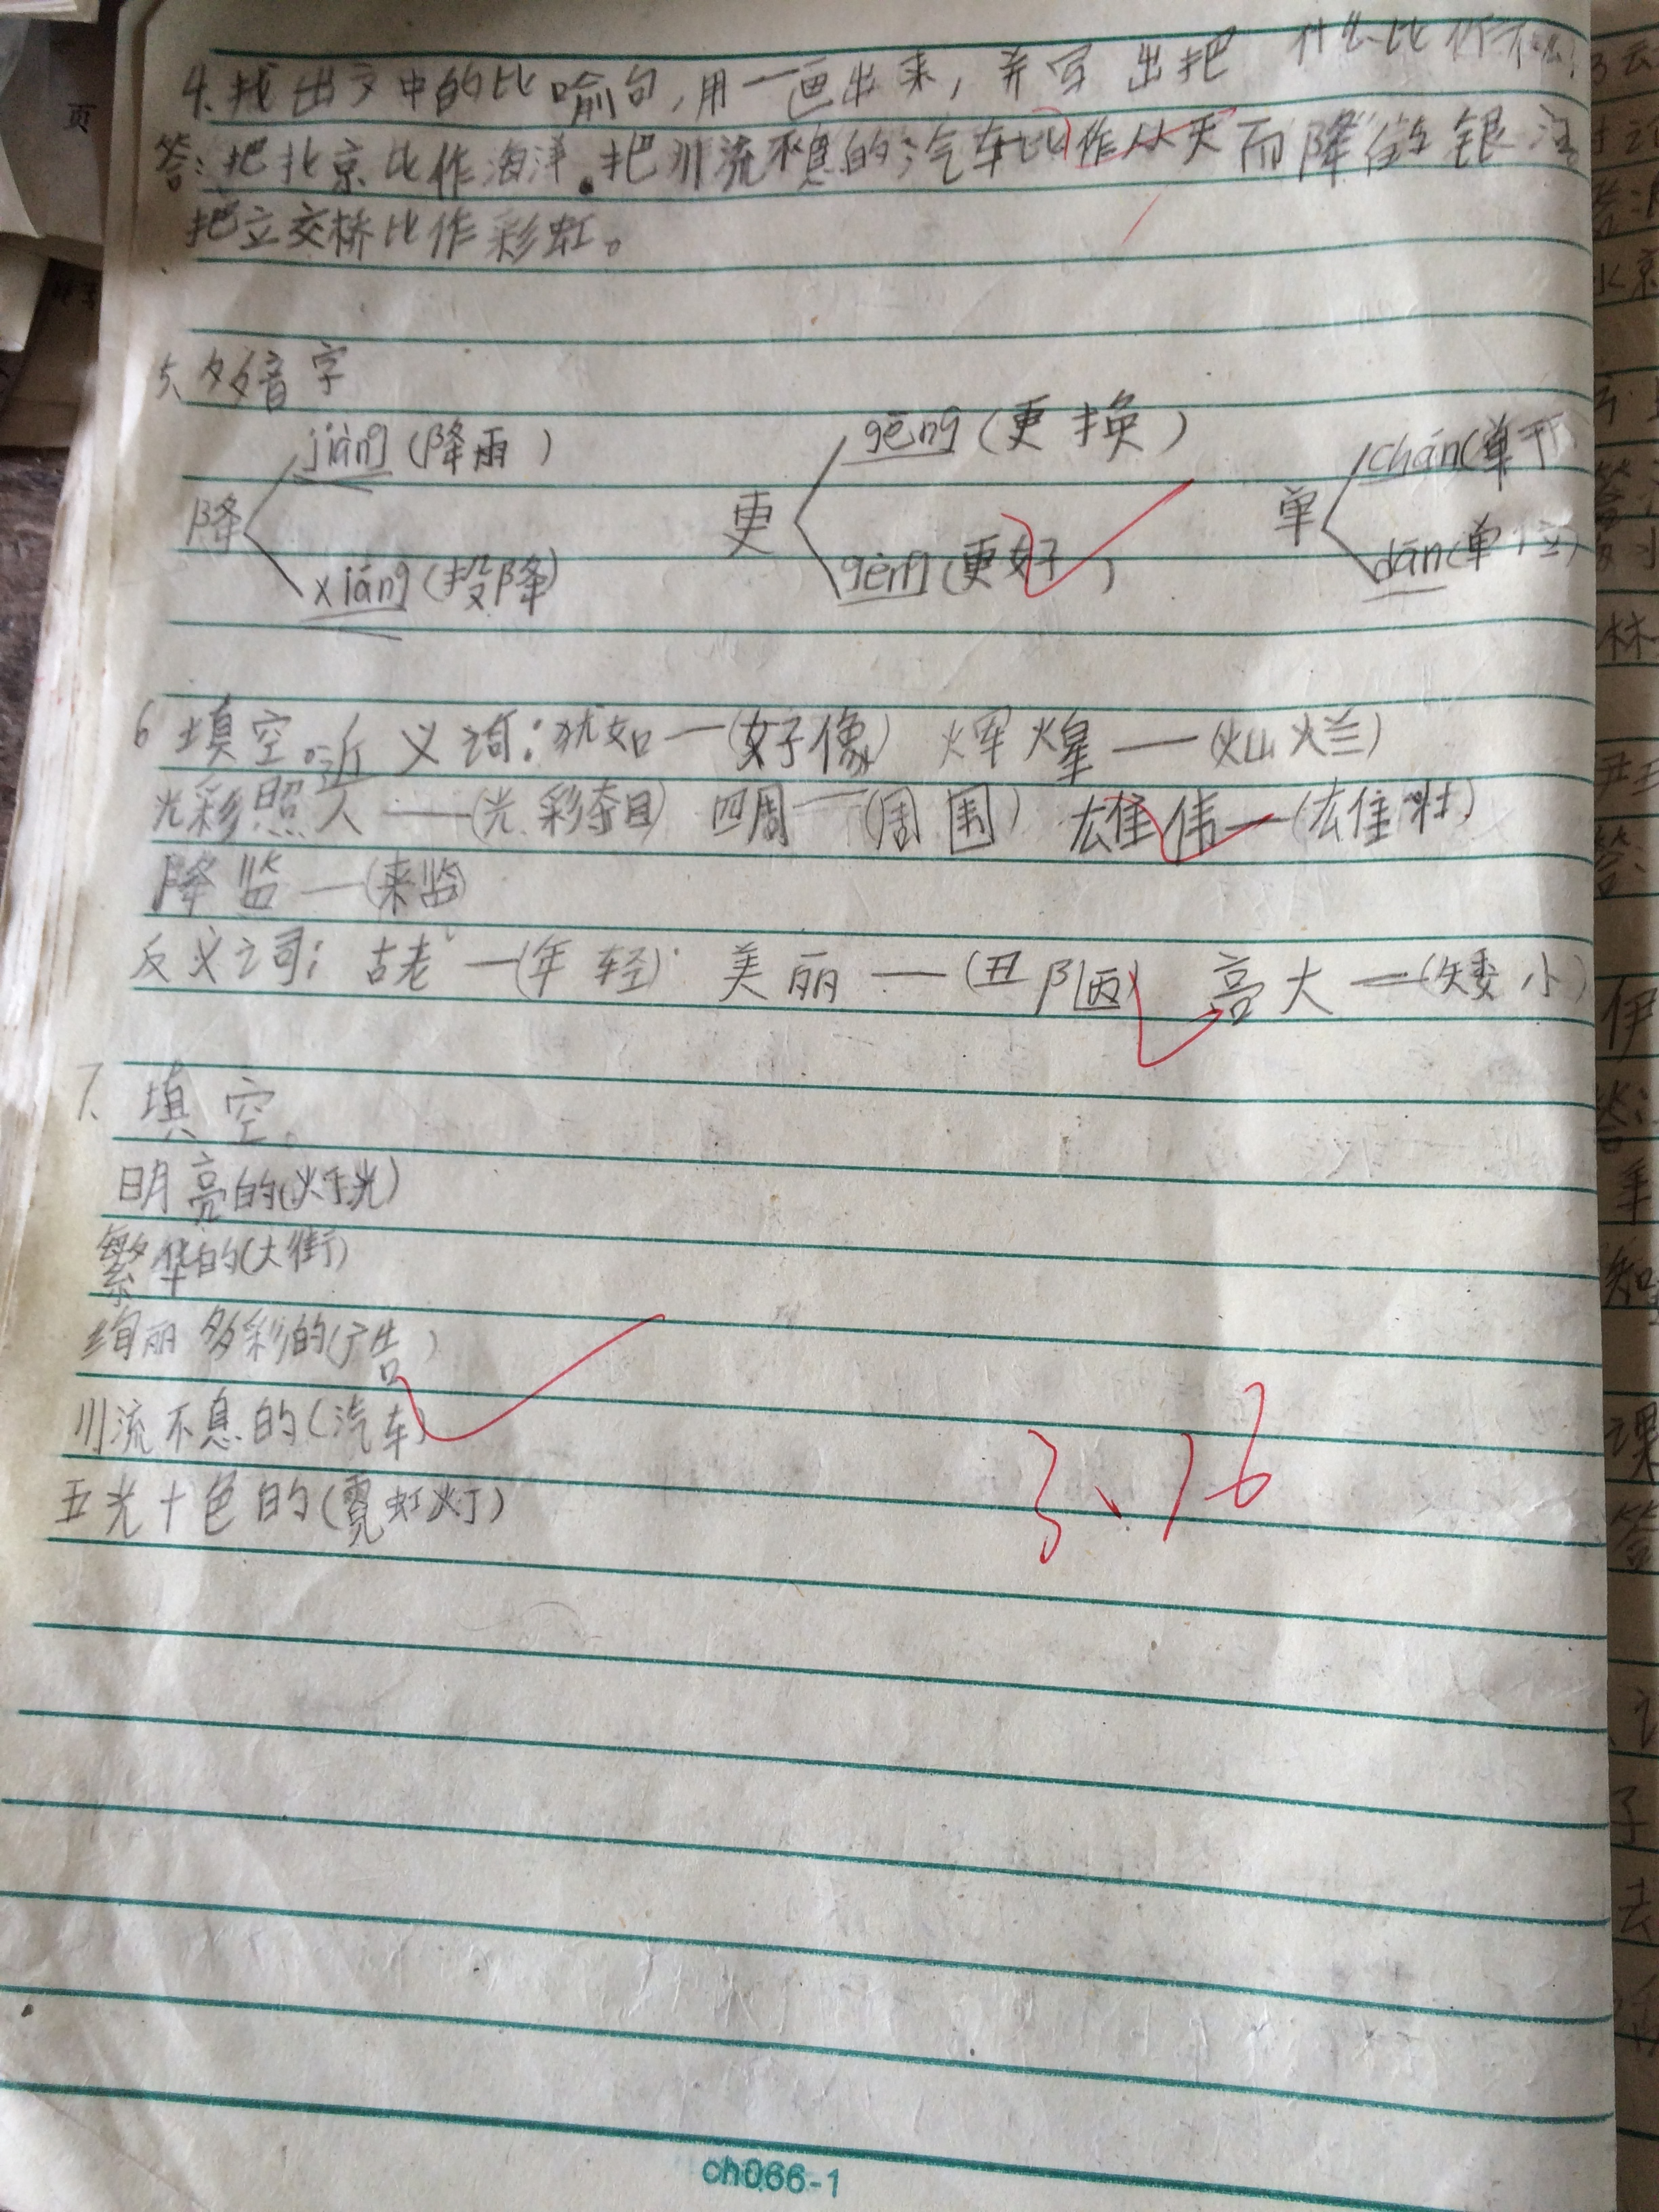 4.找出文中的比喻句,用一画出来,并写出把 什么比作什么
答:把北京比作海洋。把川流不息的汽车比作从天而降的银河
把立交桥比作彩虹。
5、多音字
jiàng(降雨) gēng(更换) chán(单于)
降 更 单
xiáng(投降) gèng(更好) dān(单位)
6 填空。近义词:犹如—(好像) 辉煌—(灿烂)
光彩照人——(光彩夺目) 四周—(周围) 雄伟—(雄壮)
降监—(来监)
反义词:古老—(年轻) 美丽—(丑陋) 高大—(矮小)
7、填空。
明亮的(灯光)
繁华的(大街)
绚丽多彩的(广告)
川流不息的(汽车)
五光十色的(霓虹灯)
3、16
ch066-1